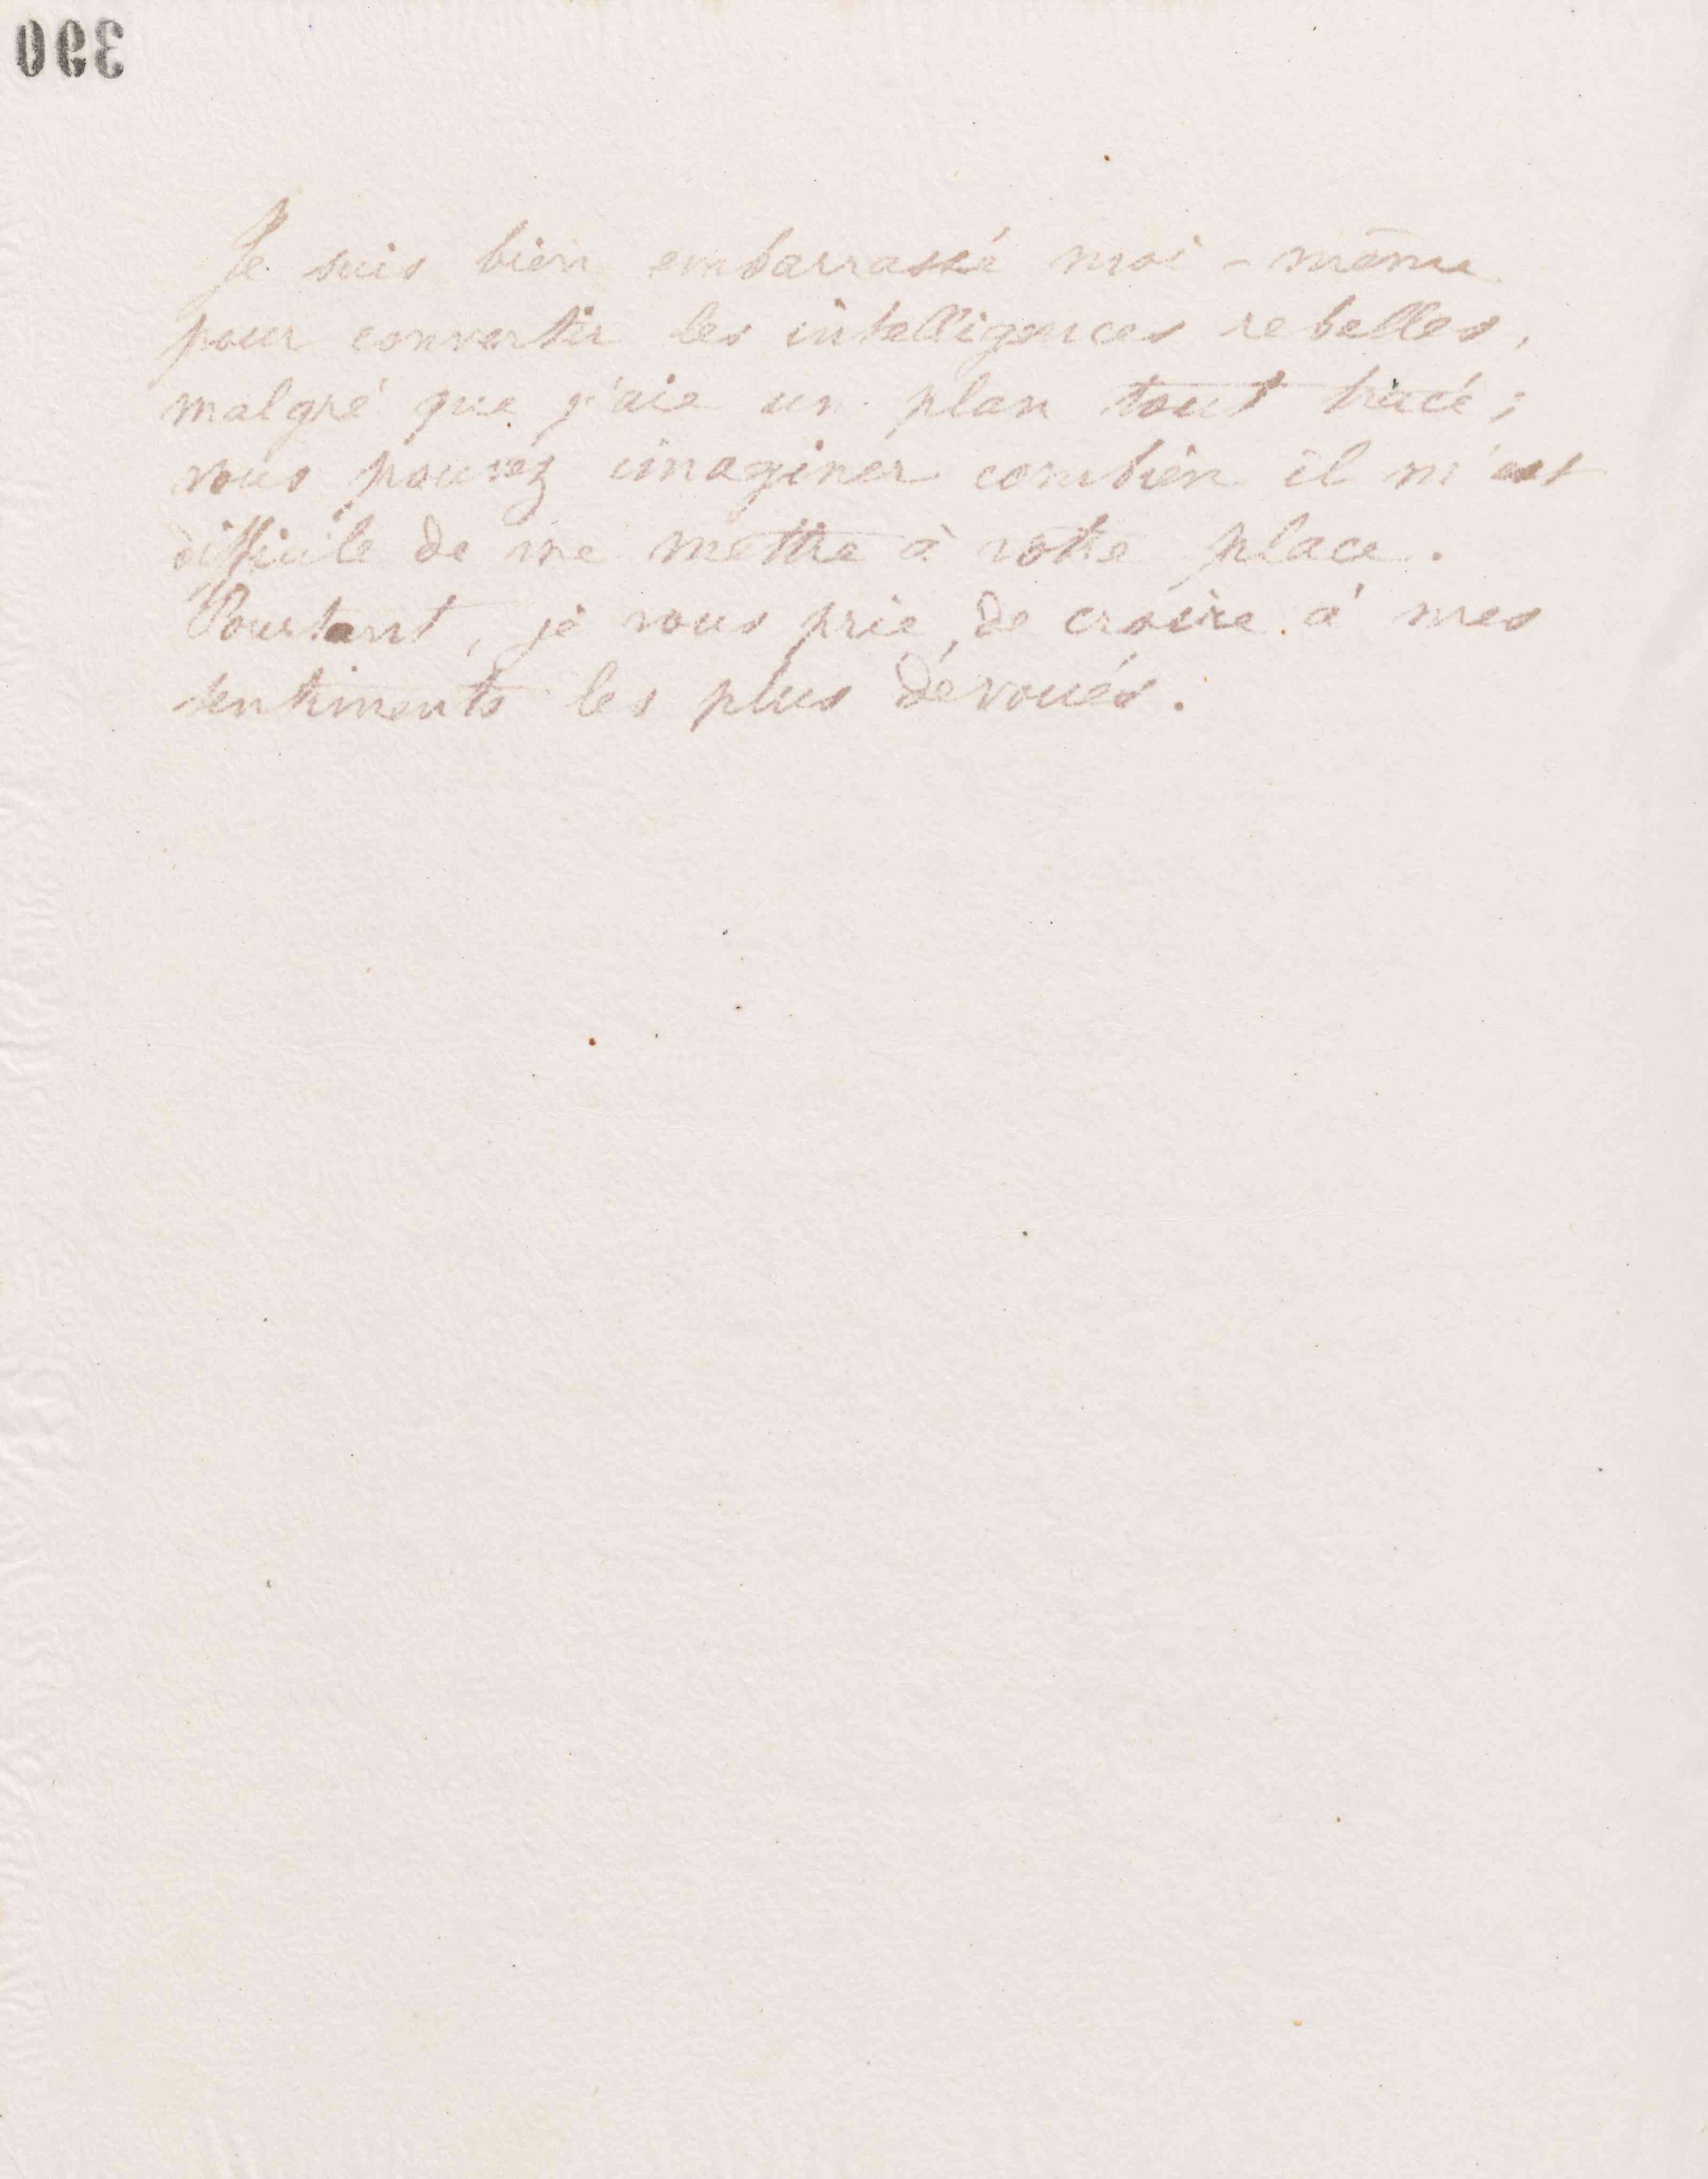 390
Je suis bien embarrassé moi-même
pour convertir les intelligences rebelles,
malgré que j'aie un plan tout tracé;
vous pouvez imaginer combien il m'est
difficile de me mettre à votre place.
Pourtant, je vous prie de croire à mes
sentiments les plus dévoués.